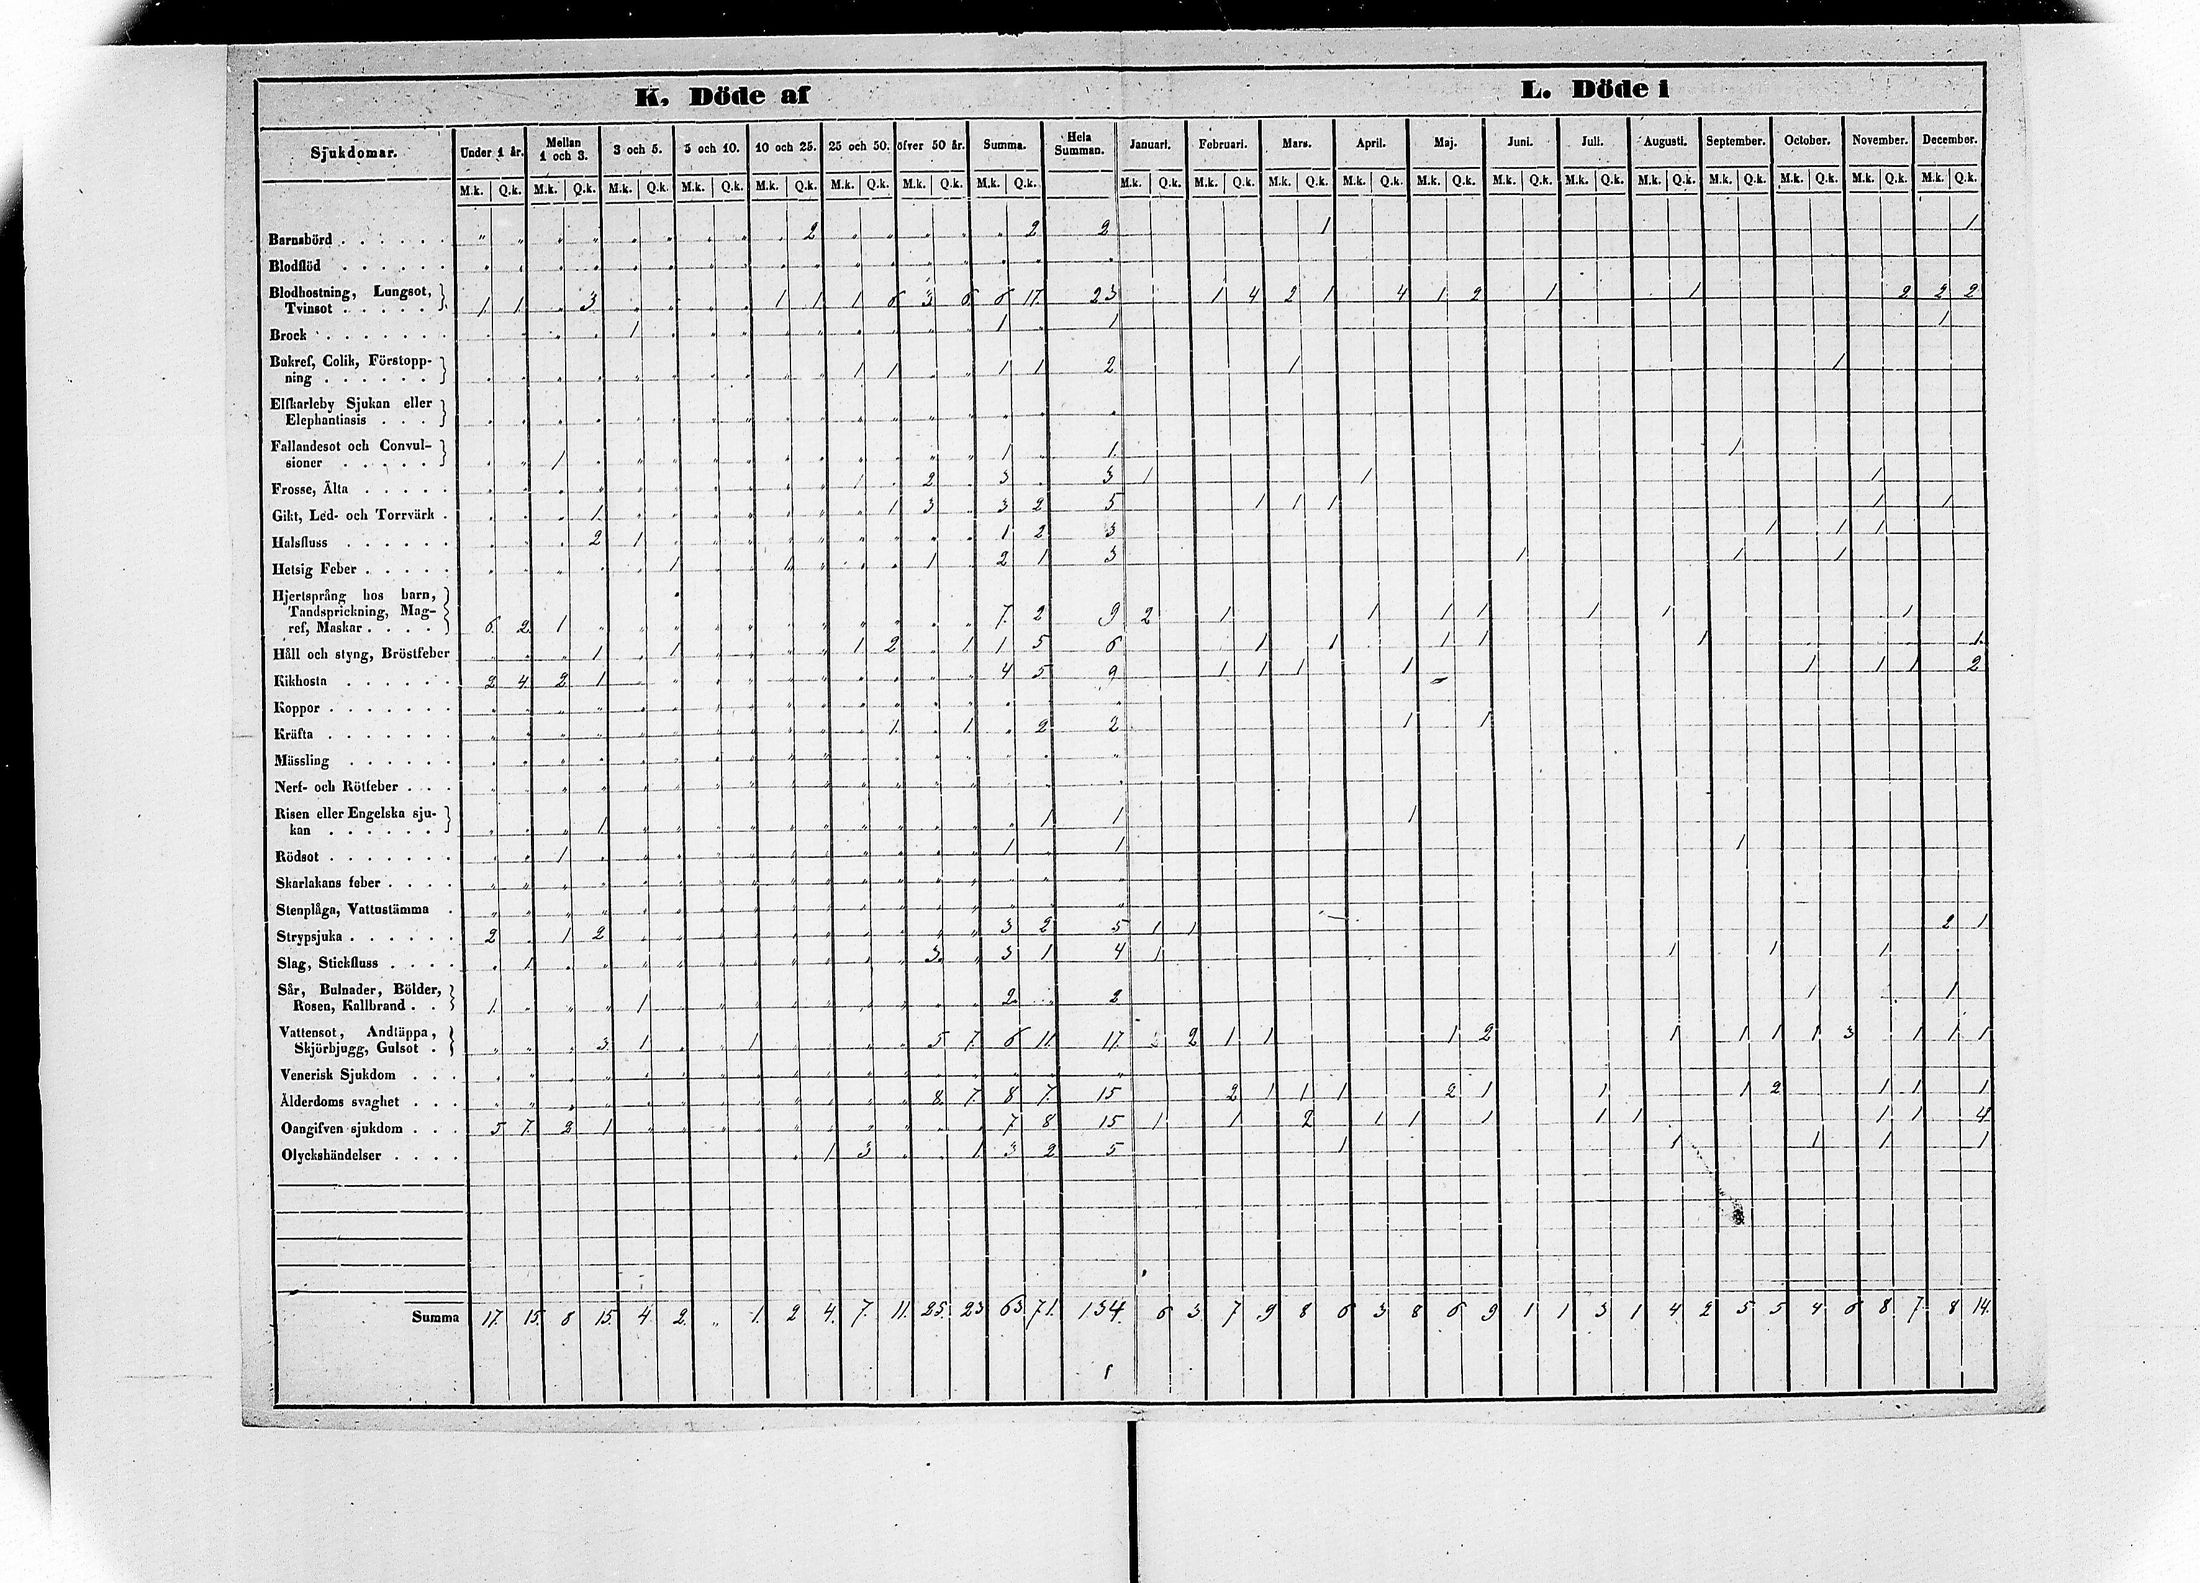 K. Döde af L. Döde i
Sjukdomar. Under 1 år. Mellan 1 och 3. 3 och 5. 5 och 10. 10 och 25. 25 och 50. öfver 50 år. Summa. Hela Summan. Januari. Februari. Mars. April. Maj. Juni. Juli. Augusti. September. October. November. December.
M.k. Q.k. M.k. Q.k. M.k. Q.k. M.k. Q.k. M.k. Q.k. M.k. Q.k. M.k. Q.k. M.k. Q.k. M.k. Q.k. M.k. Q.k. M.k. Q.k. M.k. Q.k. M.k. Q.k. M.k. Q.k. M.k. Q.k. M.k. Q.k. M.k. Q.k. M.k. Q.k. M.k. Q.k. M.k. Q.k.
Barnsbörd 2 2 2 1 1
Blodflöd
Blodhostning, Lungsot,
Tvinsot 1 1 3 1 1 1 6 3 6 6 17 23 1 4 2 1 4 1 2 1 1 2 2 2
Brock 1 1 1 1
Bukref, Colik, Förstopp-
ning 1 1 1 1 2 1 1
Elfkarleby Sjukan eller
Elephantiasis
Fallandesot och Convul-
sioner 1 1 1 1
Frosse, Älta 1 2 3 3 1 1 1
Gikt, Led- och Torrvärk 1 1 3 3 2 5 1 1 1 1 1
Halsfluss 2 1 1 2 3 1 1 1
Hetsig Feber 1 1 1 2 1 3 1 1 1
Hjertsprång hos barn,
Tandsprickning, Mag-
ref, Maskar 6 2 1 7 2 9 2 1 1 1 1 1 1 1
Håll och styng, Bröstfeber 1 1 1 2 1 1 5 6 1 1 1 1 1 1
Kikhosta 2 4 2 1 4 5 9 1 1 1 1 1 1 1 2
Koppor
Kräfta 1 1 2 2 1 1
Mässling
Nerf- och Rötfeber
Risen eller Engelska sju-
kan 1 1 1 1
Rödsot 1 1 1 1
Skarlakans feber
Stenplåga, Vattustämma
Strypsjuka 2 1 2 3 2 5 1 1 2 1
Slag, Stickfluss 1 3 3 1 4 1 1 1 1
Sår, Bulnader, Bölder,
Rosen, Kallbrand 1 1 2 2 1 1
Vattensot, Andtäppa,
Skjörbjugg, Gulsot 3 1 1 5 7 6 11 17 2 1 1 1 2 1 1 1 1 3 1 1 1
Venerisk Sjukdom
Ålderdoms svaghet 8 7 8 7 15 2 1 1 1 2 1 1 1 2 1 1 1
Oangifven sjukdom 5 7 2 1 7 8 15 1 1 2 1 1 1 1 1 1 1 4
Olyckshändelser 1 3 1 3 2 5 1 1 1 1 1
Summa 17 15 8 15 4 2 " 1 2 4 7 11 25 23 63 71 134 6 3 7 9 8 6 3 8 6 9 1 1 3 1 4 2 5 5 4 6 8 7 8 14